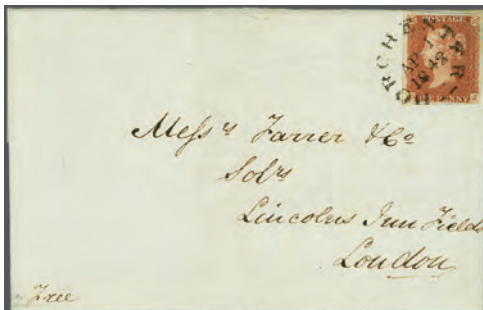 POSTAGE
DORCHESTER
AP 1
1848
PENNY
Mefsrs Farrer & Co
Solrs
Lincolns Inn Fields
London
Free